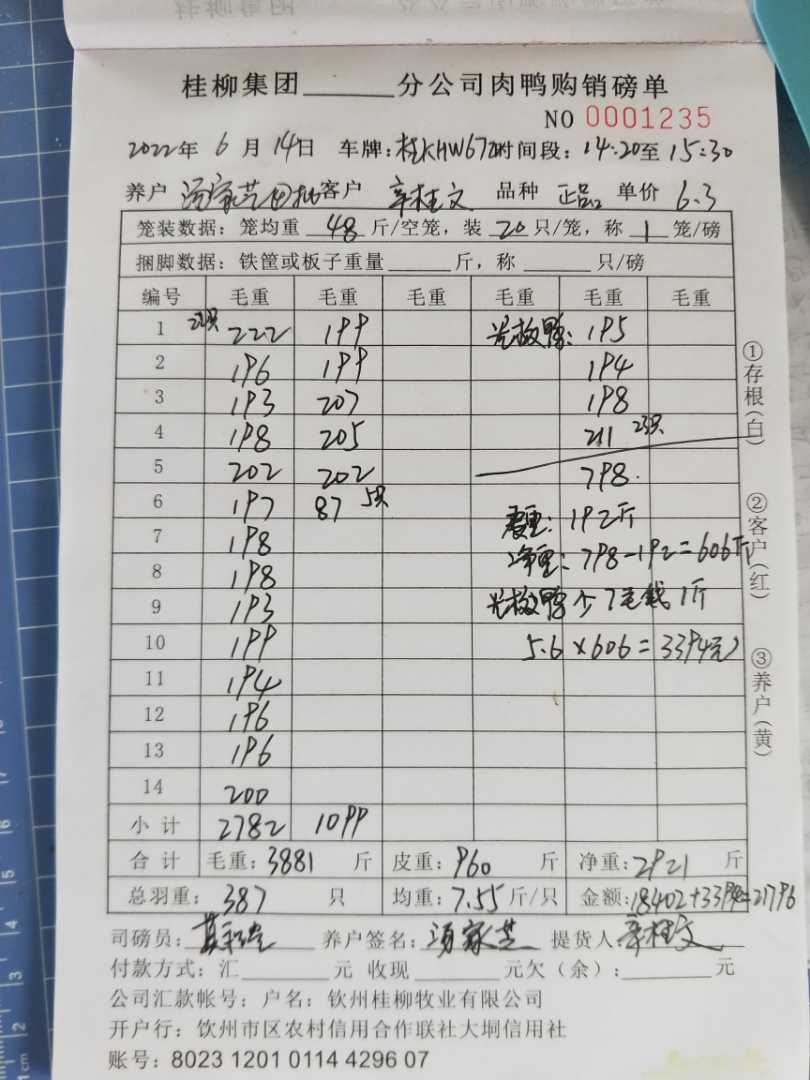 桂柳集团______分公司肉鸭购销磅单
NO 0001235
2022年 6 月 14日 车牌:桂KHW67 时间段:14:20至 15:30
养户 汤家芝 客户 辛桂文 品种 正品 单价 6.3
笼装数据:笼均重 48 斤/空笼,装 20 只/笼,称 1 笼/磅
捆脚数据:铁筐或板子重量______斤,称______只/磅
编号 毛重 毛重 毛重 毛重 毛重 毛重
1 22只 222 199 光板鸭: 195
2 196 199 194
3 193 207 198
4 198 205 211 23只
5 202 202 798
6 197 87 5只 192斤
7 198 净重: 798-192=606斤
8 198
9 193 光板鸭少7毛钱1斤
10 199 5.6×606=3394元
11 194
12 196
13 196
14 200
小计 2782 1099
合计 毛重:3881 斤 皮重:960 斤 净重:2921 斤
总羽重: 387 只 均重:7.55斤/只 金额:18402+3394=21796
司磅员: 养户签名:汤家芝 提货人 辛桂文
付款方式:汇______元 收现______元欠(余):______元
公司汇款帐号:户名:钦州桂柳牧业有限公司
开户行:钦州市区农村信用合作联社大垌信用社
账号:8023 1201 0114 4296 07
①存根(白)
②客户(红)
③养户(黄)